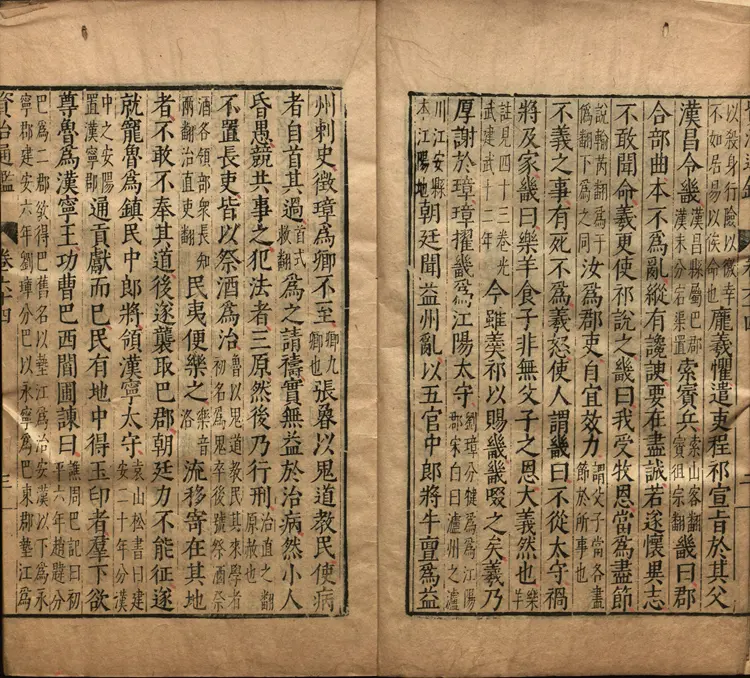 以殺身行險以徼幸不如居易以俟命也龐羲懼遣吏程祁宣旨於其父
漢昌令畿漢昌縣屬巴郡漢末分宕渠置索賨兵索山客翻賨祖宗翻畿曰郡
合部曲本不爲亂縱有讒諛要在盡誠若遂懷異志
不敢聞命羲更使祁說之畿曰我受牧恩當爲盡節
說輸芮翻爲于僞翻下爲之同汝爲郡吏自宜效力謂父子當各盡節於所事也
不義之事有死不爲羲怒使人謂畿曰不從太守禍
將及家畿曰樂羊食子非無父子之恩大義然也樂羊
註見四十三卷光武建武十二年今雖羹祁以賜畿畿啜之矣羲乃
厚謝於璋璋擢畿爲江陽太守劉璋分犍爲江陽郡宋白曰瀘州之瀘
川江安縣本江陽地朝廷聞益州亂以五官中郎將牛亶爲益
州刺史徵璋爲卿不至卿九卿也張魯以鬼道教民使病
者自首其過首式救翻爲之請禱實無益於治病然小人
昏愚競共事之犯法者三原然後乃行刑治直之翻原赦也
不置長吏皆以祭酒爲治魯以鬼道教民其來學者初名爲鬼卒後號祭酒祭
酒各領部衆長知兩翻治直吏翻民夷便樂之樂音洛流移寄在其地
者不敢不奉其道後遂襲取巴郡朝廷力不能征遂
就寵魯爲鎮民中郎將領漢寧太守袁山松書曰建安二十年分漢
中之安陽置漢寧郡通貢獻而已民有地中得玉印者羣下欲
尊魯爲漢寧王功曹巴西閻圃諫曰譙周巴記曰初平六年趙韙分
巴爲二郡欲得巴舊名以墊江爲治安漢以下爲永寧郡建安六年劉璋分巴以永寧爲巴東郡墊江爲
資治通鑑 卷六十四 三